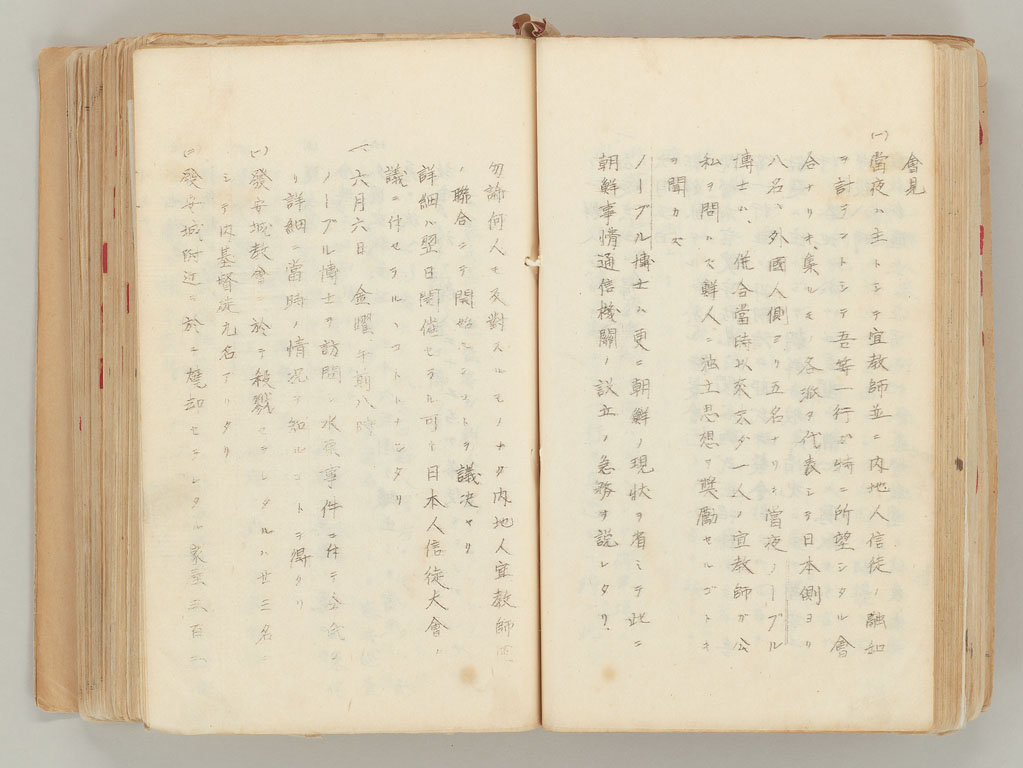 會見
(一) 當夜ハ主トシテ宣教師並ニ内地人信徒ノ融和
ヲ計ラントシテ吾等一行ガ特ニ所望シタル會
合ナリキ、集ルモノ各派ヲ代表シテ日本側ヨリ
八名、外國人側ヨリ五名ナリシ當夜ノーブル
博士ハ、併合當時以來未ダ一人ノ宣教師ガ公
私ヲ問ハズ鮮人ニ独立思想ヲ奨勵セルゴトキ
ヲ聞カズ
ノーブル博士ハ更ニ朝鮮ノ現状ヲ省ミテ此ニ
朝鮮事情通信機關ノ設立ノ急務ヲ説レタリ、
勿論何人モ反對スルモノナク内地人宣教師
ノ聯合ニテ開始センコトヲ議決セリ
詳細ハ翌日開催セラル可キ日本人信徒大會ノ
議ニ付セラルヽコトトナレタリ
一、六月六日 金曜 午前八時
ノーブル博士ヲ訪問シ水原事件ニ付テ
リ詳細ニ當時ノ情況ヲ知ルコトヲ得タリ
(一) 發安城教會ニ於テ殺戮セラレタルハ廿三名ニ
シテ内基督徒九名アリタリ
(二) 發安城附近ニ於テ焼却セラレタル家屋三百二